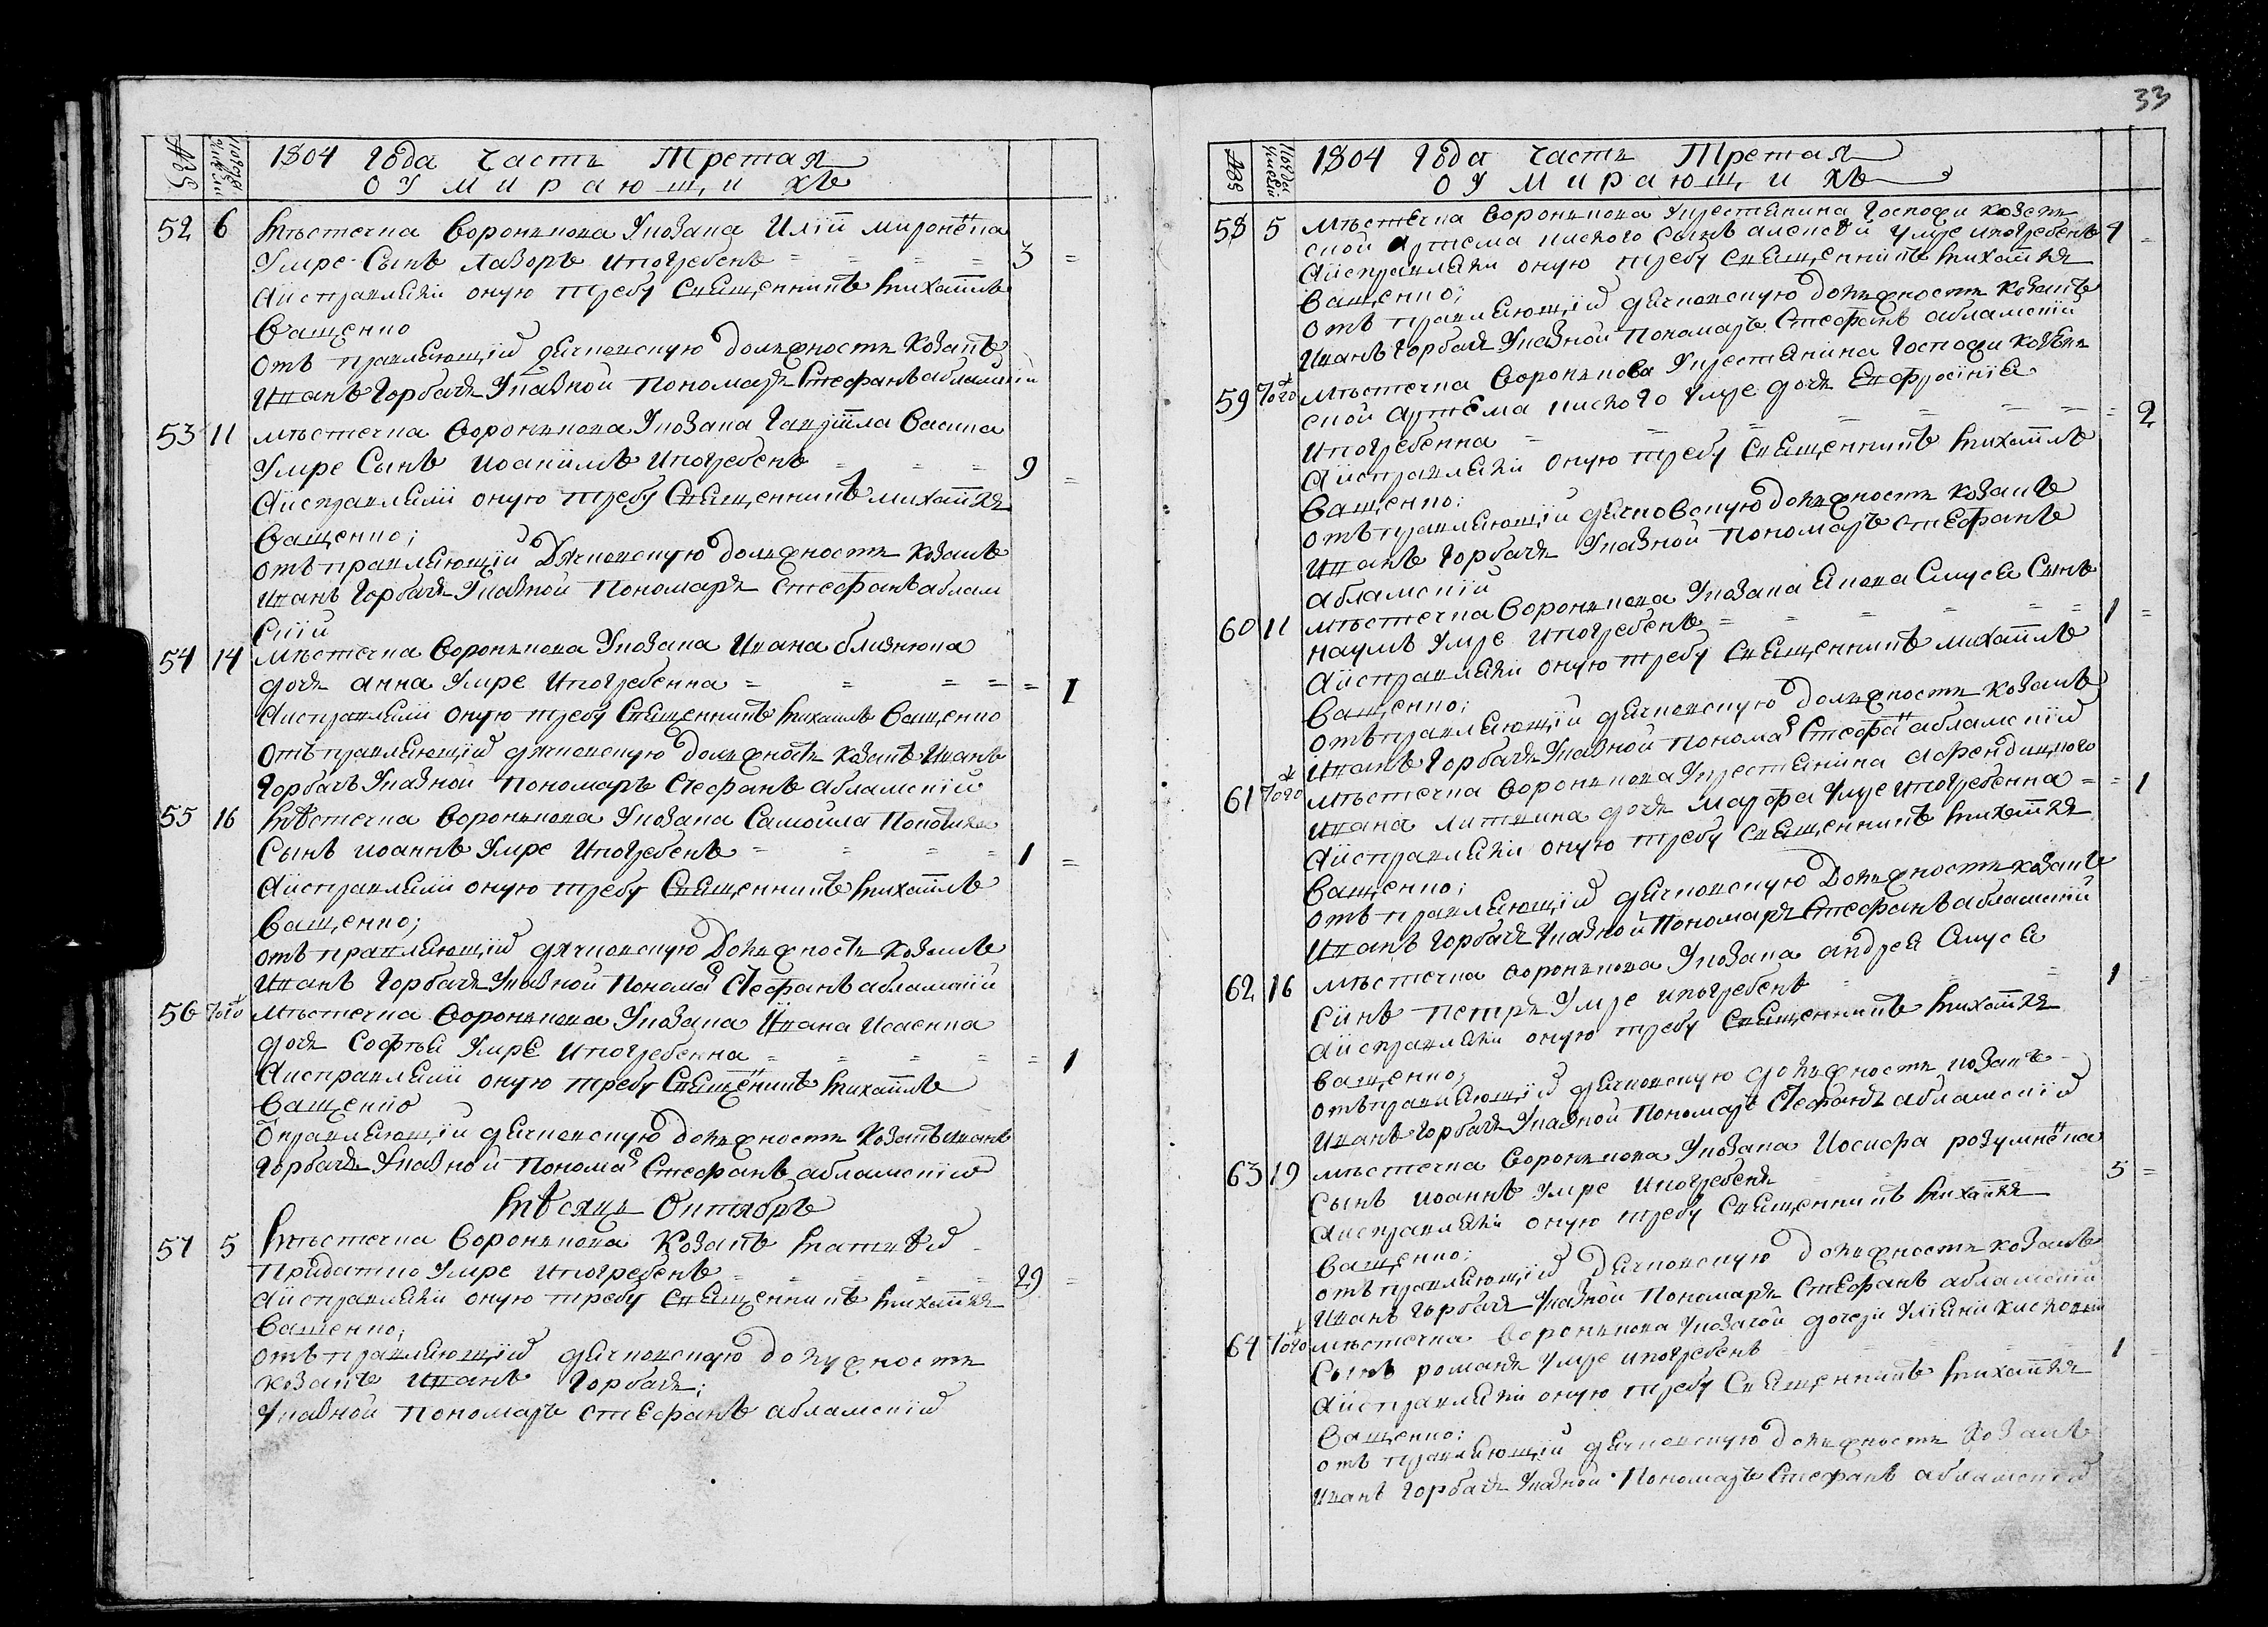 33
1804 Года Часть Третая
О У м и р а ю щ и хъ
52 6 Мѣстечка Воронкова Укозака Иліи миронёка
Умре Сынъ Лазоръ ипогребенъ = = = = 3 =
Аисправляли оную требу Священникъ Михаилъ
Ващенко
отъ правляющій дячковскую должность Козакъ
Иванъ Горбачь Указной Пономарь Стефанъ абламскій
53 11 мѣстечка Воронкова Укозака Гаврііла Васика
Умре Сынъ иоакимъ ипогребенъ = = = 9 =
Аисправляли оную требу Священникъ михаилъ
Ващенко;
отъ правляющій Дячковскую должность козакъ
иванъ Горбачь Указной Пономарь Стефанъ аблам
скій
54 14 Мѣстечка Воронкова Укозака Ивана близнюка
дочь анна Умре Ипогребенна = = = = = 1
Аисправляли оную требу Священникъ Михаилъ Ващенко
отъ правляющій дячковскую должность козакъ Иванъ
Горбачъ Указной Пономаръ Стефанъ абламскій
55 16 Мѣстечка Воронкова Укозака Самойла
Сынъ иоаннъ Умре Ипогребенъ = = = = 1 =
Аисправляли оную требу Священникъ Михаилъ
Ващенко;
отъ правляющій дячковскую Должность козакъ
Иванъ Горбачь Указной Понома Стефанъ абламскій
56 того Мѣстечка Воронкова Укозака Ивана Исаенка
дочь Софѣя Умре ипогребенна = = = = = 1
Аисправляли оную требу Священикъ Михаилъ
Ващенко
Оправляющій дячковскую должность Козакъ иванъ
Горбачь Указной Понома Стефанъ абламскій
Мѣсяць Октябръ
57 5 Мѣстечка Воронкова Козакъ Матвѣй
Придатко Умре ипогребенъ = = = = 29 =
Аисправляли оную требу Священникъ Михаилъ
Ващенко;
отъ правляющій дячковскую должность
козакъ Иванъ Горбачь;
Указной Пономаръ Стефанъ абламскій
1804 Года Часть Третая
О У м и р а ю щ и хъ
58 5 Мѣстечка Воронкова Укрестянина Госпожи козем
ской Артема кислого Сынъ алексѣй умре ипогребенъ 4 =
Аисправляли оную требу Священникъ Михаилъ
Ващенко;
отъ правляющій дячковскую должность козакъ
Иванъ Горбачь Указной Пономаръ Стефанъ абламскій
59 того Мѣстечка Воронкова Укрестянина Госпожи козем
ской Артема кислого Умре дочь Евфросинія
ипогребенна = = = = = = 2
Аисправляли оную требу Священникъ Михаилъ
Ващенко:
отъ правляющій дячковскую должность козакъ
Иванъ Горбачь Указной Пономаръ Стефанъ
абламскій
60 11 Мѣстечка Воронкова Укозака Якова Слуся Сынъ
наумъ Умре ипогребенъ = = = = = 1 =
Аисправляли оную требу Священникъ михаилъ
Ващенко;
отъ правляющій дячковскую должность козакъ
Иванъ Горбачь Указной Понома Стефа абламскій
61 того Мѣстечка Воронкова Укрестянина
Ивана литвина дочь марфа Умре ипогребенна = = 1
Аисправляли оную требу Священникъ Михаилъ
Ващенко;
отъ правляющій дячковскую Должность козакъ
Иванъ Горбачь Указной Пономарь Стефанъ абламскій
62 16 Мѣстечка Воронкова Укозака андрея Слуся
Синъ петръ Умре ипогребенъ = 1 =
Аисправляли оную требу Священникъ Михаилъ
Ващенко;
отъ правляющій дячковскую должность козакъ
Иванъ Горбачь Указной Пономаръ Стефанъ абламскій
63 19 Мѣстечка Воронкова Укозака Иосифа розумнёка
Сынъ иоаннъ Умре Ипогребенъ 5 =
Аисправляли оную требу Священникъ Михаилъ
Ващенко;
отъ правляющій Дячковскую должность козакъ
Иванъ Горбачь Указной Пономарь Стефанъ абламскій
64 того Мѣстечка Воронкова Укозачой дочери Уліяни
Сынъ романъ Умре ипогребенъ 1 =
Аисправляли оную требу Священникъ Михаилъ
Ващенко:
отъ правляющій дячковскую должность Козакъ
Иванъ Горбачь Указной Пономаръ Стефанъ абламскій